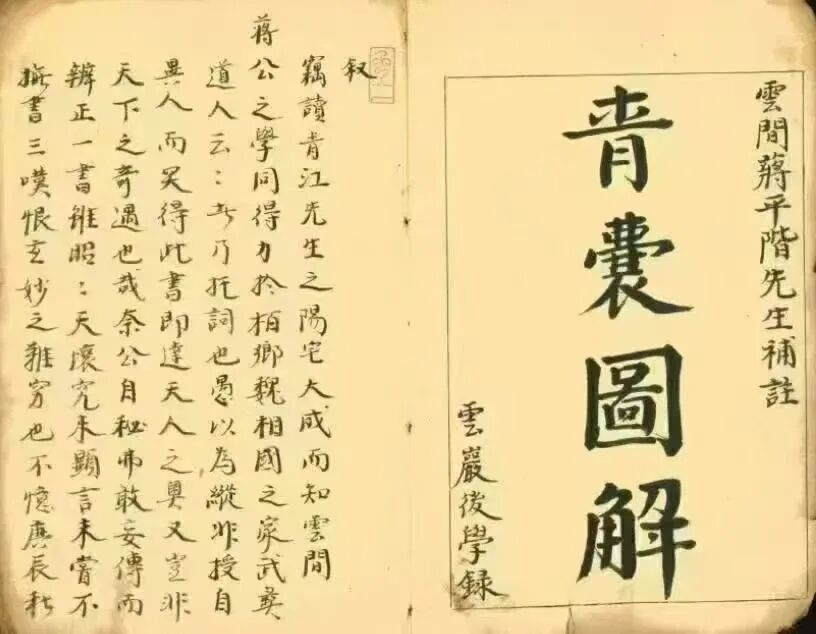 雲間蔣平階先生補註
青囊圖解
雲巖後學録
叙
竊讀青江先生之陽宅大成而知雲間
蔣公之學同得力於栢鄉魏相國之家武夷
道人云〻者乃托詞也愚以為縱非授自
異人而又得此書即達天人之奧又豈非
天下之奇遇也哉奈公自秘弗敢妄傳而
辨正一書雖昭〻天壤究未顯言未嘗不
撫書三嘆恨玄妙之難窮也不憶庚辰秋